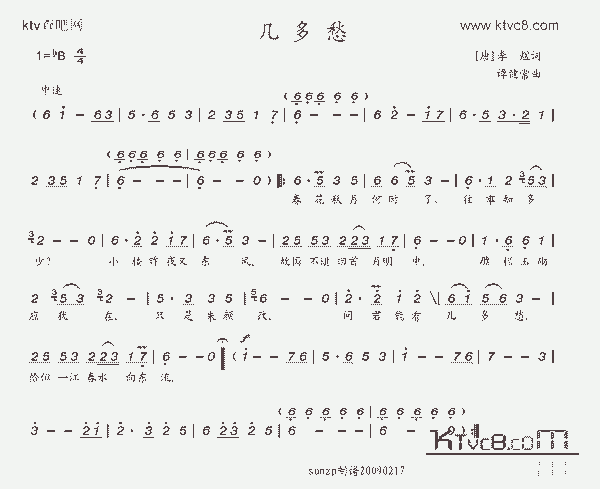 ktv 网
www.ktvc8.com
几多愁
1=♭B 4/4
[唐]李煜词
谭健常曲
中速
(666 6 6 | 666 6 6
(6 1 — 63 | 5·6 53 | 2 35 1 7 | 6 — — | 6 2 — 17 | 6·1 2 6· | 5 3·2 1 |
(666 6 6 | 666 6 6)
2 35 1 7 | 6 — — — | 6 — — 0) ‖: 6·5 3 5 | 6 65 3 — | 6·1 2 353 |
春花秋月何时了,往事知多
2 — — 0 | 6·2 2 17 | 6·5 3 — | 25 53 223 | 2 — — 0 | 1·6 5 6 |
少?小楼昨夜又东风,故国不堪回首月明中。雕栏玉砌
2 53 2 — | 5· 3 5 | 6 — — 0 | 2·2 1 2 \ | 61 56 3 |
应犹在,只是朱颜改,问君能有几多愁,
25 53 2 23 17 | 6 — 0 | (1 — 76 | 5·6 53 | 1 — 76 | 7 — — 3 |
恰似一江春水向东流。
(6 6 6 6 6 | 6 6 6 6
3 — — 21 | 2·3 2 5 | 6 23 2 5 | 6 — — — | 6 — — 0) :‖
KTvc8.com
sunzp制谱20090217